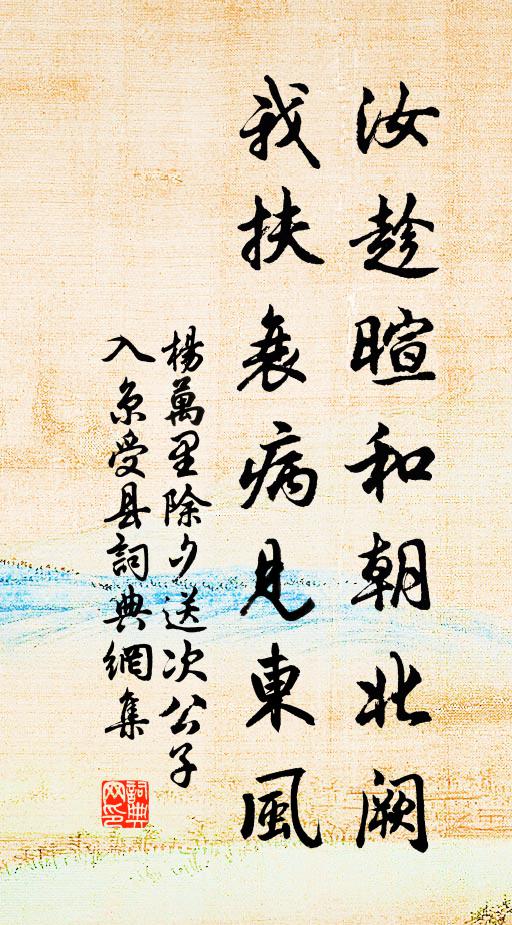 汝趁暄和朝北阙
我扶衰病見東風
楊萬里除夕送次公子
入京受县詞典網集
詞典
网印